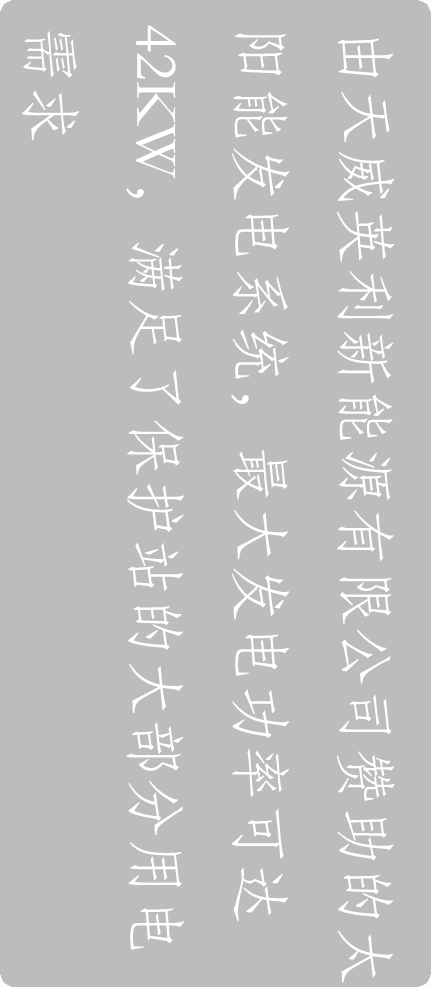 由天威英利新能源有限公司赞助的太
阳能发电系统，最大发电功率可达
42KW，满足了保护站的大部分用电
需求